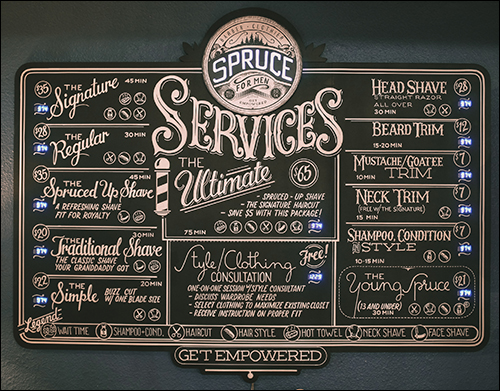 BARBER CLOTHIER
SPRUCE
FOR MEN
GET EMPOWERED
SERVICES
$35
The Signature
45 MIN
$28
THE Regular
30 MIN
$35
THE Spruced Up Shave
45 MIN
A REFRESHING SHAVE
FIT FOR ROYALTY
$20
THE Traditional Shave
30 MIN
THE CLASSIC SHAVE
YOUR GRANDDADDY GOT
$22
THE Simple
20 MIN
BUZZ CUT
W/ ONE BLADE SIZE
THE
Ultimate
$65
- SPRUCED-UP SHAVE
- THE SIGNATURE HAIRCUT
- SAVE $5 WITH THIS PACKAGE!
75 MIN
Style/Clothing
Free!
CONSULTATION
ONE-ON-ONE SESSION W/ STYLE CONSULTANT
- DISCUSS WARDROBE NEEDS
- SELECT CLOTHING TO MAXIMIZE EXISTING CLOSET
- RECEIVE INSTRUCTION ON PROPER FIT
HEAD SHAVE
$28
STRAIGHT RAZOR
ALL OVER
30 MIN
BEARD TRIM
$12
15-20 MIN
MUSTACHE/GOATEE
$7
10 MIN
TRIM
NECK TRIM
$7
(FREE W/ THE SIGNATURE)
15 MIN
SHAMPOO, CONDITION
$7
AND STYLE
10-15 MIN
THE
Young Spruce
$27
(13 AND UNDER)
30 MIN
Legend:
WAIT TIME
SHAMPOO + COND.
HAIRCUT
HAIR STYLE
HOT TOWEL
NECK SHAVE
FACE SHAVE
GET EMPOWERED